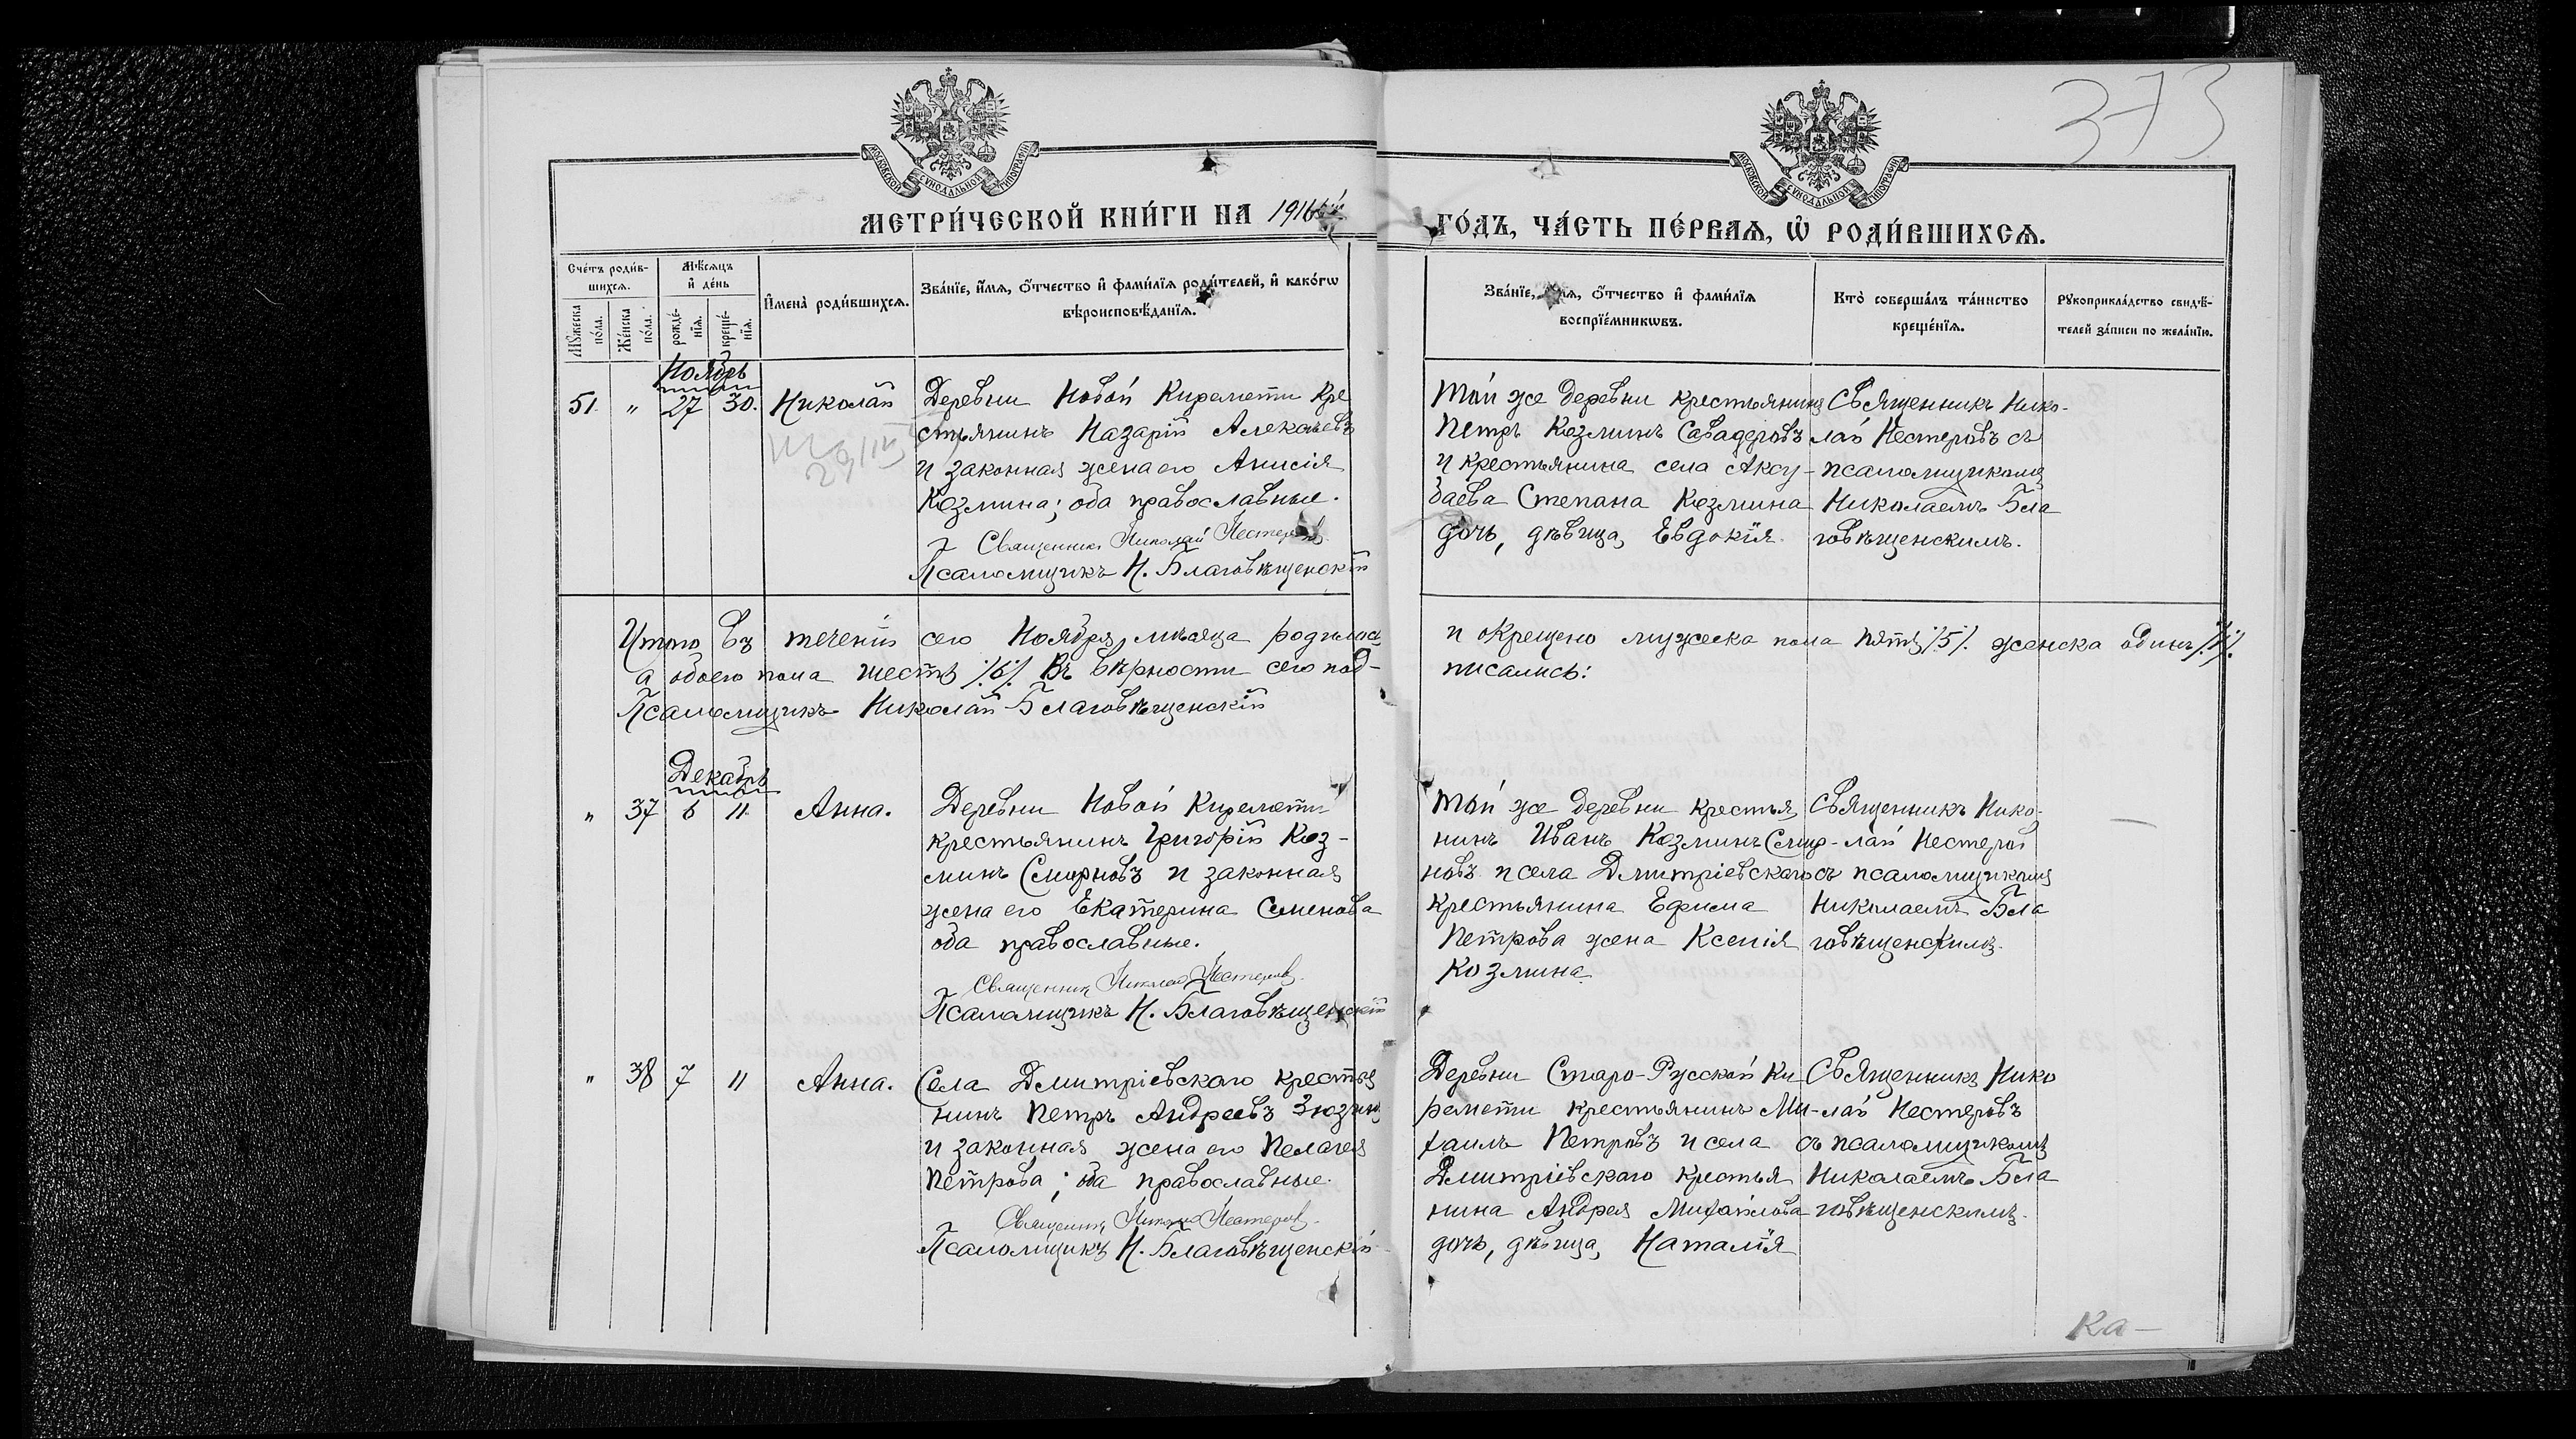 373
МОСКОВСКОЙ СѴНОДАЛЬНОЙ ТИПОГРАФІИ
МОСКОВСКОЙ СѴНОДАЛЬНОЙ ТИПОГРАФІИ
МЕТРИ́ЧЕСКОЙ КНИ́ГИ НА 1916
ГО́ДЪ, ЧА́СТЬ ПЕ́РВАѦ, Ѡ҆ РОДИ́ВШИХСѦ.
Сче́тъ роди́в-
шихсѧ.
Мꙋ́жеска по́ла.
Же́нска по́ла.
Мѣ́сѧцъ и҆ де́нь
рожде́-нїѧ.
креще́-нїѧ.
И҆мена̀ роди́вшихсѧ.
Зва́нїе, и҆́мѧ, ѻ҆́тчество и҆ фами́лїѧ роди́телей, и҆ како́гѡ
вѣроисповѣ́данїѧ.
Зва́нїе, и҆́мѧ, ѻ҆́тчество и҆ фами́лїѧ
воспрїе́мникѡвъ.
Кто̀ соверша́лъ та́инство
креще́нїѧ.
Рꙋкоприкла́дство свидѣ́-
телей за́писи по жела́нїю.
Ноябрь
51. " 27 30. Николай
Деревни Новой Киремети кре
стьянинъ Назарій Алексѣевъ
и законная жена его Анисія
Козмина; оба православные.
Священникъ Николай Нестеровъ
Псаломщикъ Н. Благовѣщенскій
Той же деревни крестьянинъ
Петръ Козминъ Савадеровъ
и крестьянина села Аксу-
баева Степана Козмина
дочь, дѣвица, Евдокія.
Священникъ Нико-
лай Нестеровъ съ
псаломщикомъ
Николаемъ Бла
говѣщенскимъ.
Итого въ теченіи сего Ноября мѣсяца родилось и окрещено мужеска пола пять /5/. женска одинъ /1/.
а обоего пола шесть /6/. Въ вѣрности сего под- писались:
Псаломщикъ Николай Благовѣщенскій
Декабрь
" 37 6 11 Анна.
Деревни Новой Киремети
крестьянинъ Григорій Коз-
минъ Смирновъ и законная
жена его Екатерина Семенова
оба православные.
Священникъ Николай Нестеровъ
Псаломщикъ Н. Благовѣщенскій
Той же деревни крестья
нинъ Иванъ Козминъ Смир-
новъ и села Дмитріевскаго
крестьянина Ефима
Петрова жена Ксенія
Козмина
Священникъ Нико-
лай Нестеров
съ псаломщикомъ
Николаемъ Бла
говѣщенскимъ.
" 38 7 11 Анна.
Села Дмитріевскаго крестья
нинъ Петръ Андреевъ Зюзинъ
и законная жена его Пелагея
Петрова; оба православные.
Священникъ Николай Нестеровъ
Псаломщикъ Н. Благовѣщенскій
Деревни Старо-Русской Ки
ремети крестьянинъ Ми-
хаилъ Петровъ и села
Дмитріевскаго крестья
нина Андрея Михайлова
дочь, дѣвица, Наталія
Священникъ Нико
лай Нестеровъ
съ псаломщикомъ
Николаемъ Бла
говѣщенскимъ.
Ка-